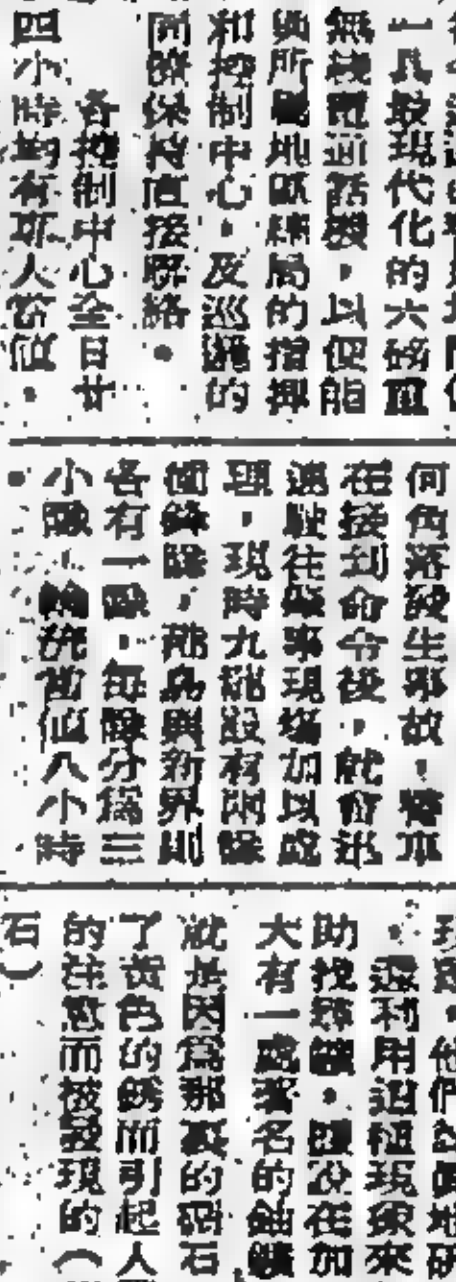 一具最現代化的六磅重
無綫電通話機，以便能
與所屬地區總局的指揮
和控制中心，及巡邏的
同僚保持直接聯絡。
各控制中心全日廿
四小時均有專人當值。
何角落發生事故，警車
在接到命令後，就會迅
速駛往肇事現場加以處
理，現時九龍設有兩隊
衝鋒隊，港島與新界則
各有一隊，每隊分為三
小隊，輪流當值八小時
。
還利用這種現象來
助找尋鑛。據說在加
大有一處著名的鈾鑛
就是因為那裏的礦石
了黃色的銹而引起人
的注意而被發現的（
石）